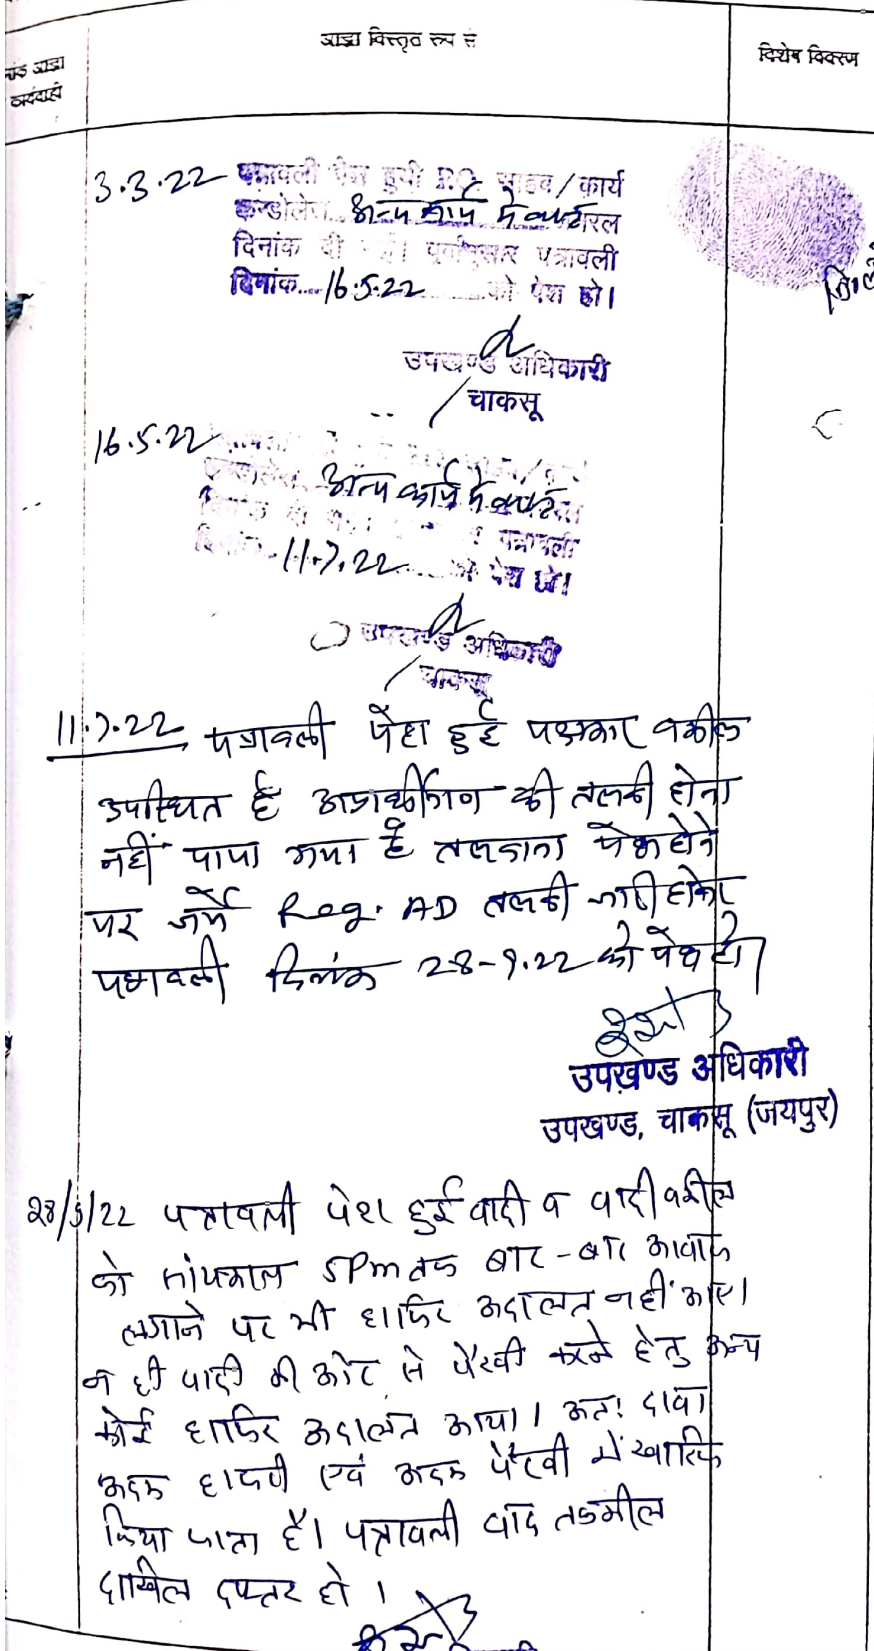 आज्ञा विस्तृत रूप से
विशेष विवरण
आज्ञा
3.3.22 पत्रावली पेश हुयी P.O. साहब/कार्य
अन्य कार्य में व्यस्त
दिनांक दी गई। पूर्वानुसार पत्रावली
दिनांक....16.5.22........को पेश हो।
उपखण्ड अधिकारी
चाकसू
16.5.22
अन्य कार्य में व्यस्त
दिनांक दी पत्रावली
11.7.22 को पेश हो।
उपखण्ड अधिकारी
चाकसू
11.7.22 पत्रावली पेश हुई पक्षकार वकील
उपस्थित है अप्रार्थीगण की तलबी होना
नहीं पाया गया है तलबाना पेश होने
पर जर्ये Reg. AD तलबी जारी होकर
पत्रावली दिनांक 28-9.22 को पेश हो।
उपखण्ड अधिकारी
उपखण्ड, चाकसू (जयपुर)
28/9/22 पत्रावली पेश हुई वादी व वादी वकील
को सांयकाल 5Pm तक बार-बार आवाज
लगाने पर भी हाजिर अदालत नहीं आए।
न ही वादी की ओर से पैरवी करने हेतु अन्य
कोई हाजिर अदालत आया। अतः दावा
अदम हाजरी एवं अदम पैरवी में खारिज
किया जाता है। पत्रावली बाद तकमील
दाखिल दफ्तर हो।